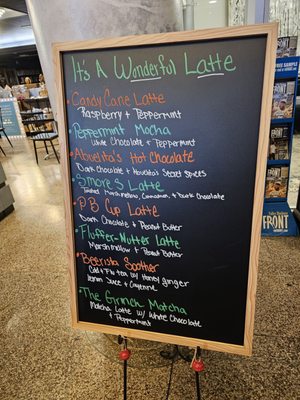 It's A Wonderful Latte
Candy Cane Latte
Raspberry + Peppermint
Peppermint Mocha
White Chocolate + Peppermint
Abuelito's Hot Chocolate
Dark Chocolate + Abuelito's Secret Spices
S'mores Latte
Toasted Marshmallow, Cinnamon, + Dark Chocolate
P.B Cup Latte
Dark Chocolate + Peanut Butter
Fluffer-Nutter Latte
Marshmallow + Peanut Butter
Beerista Soother
Cold + Flu tea w/ Honey ginger
Lemon Juice + Cayenne
The Grinch Matcha
Matcha Latte w/ White Chocolate
+ Peppermint